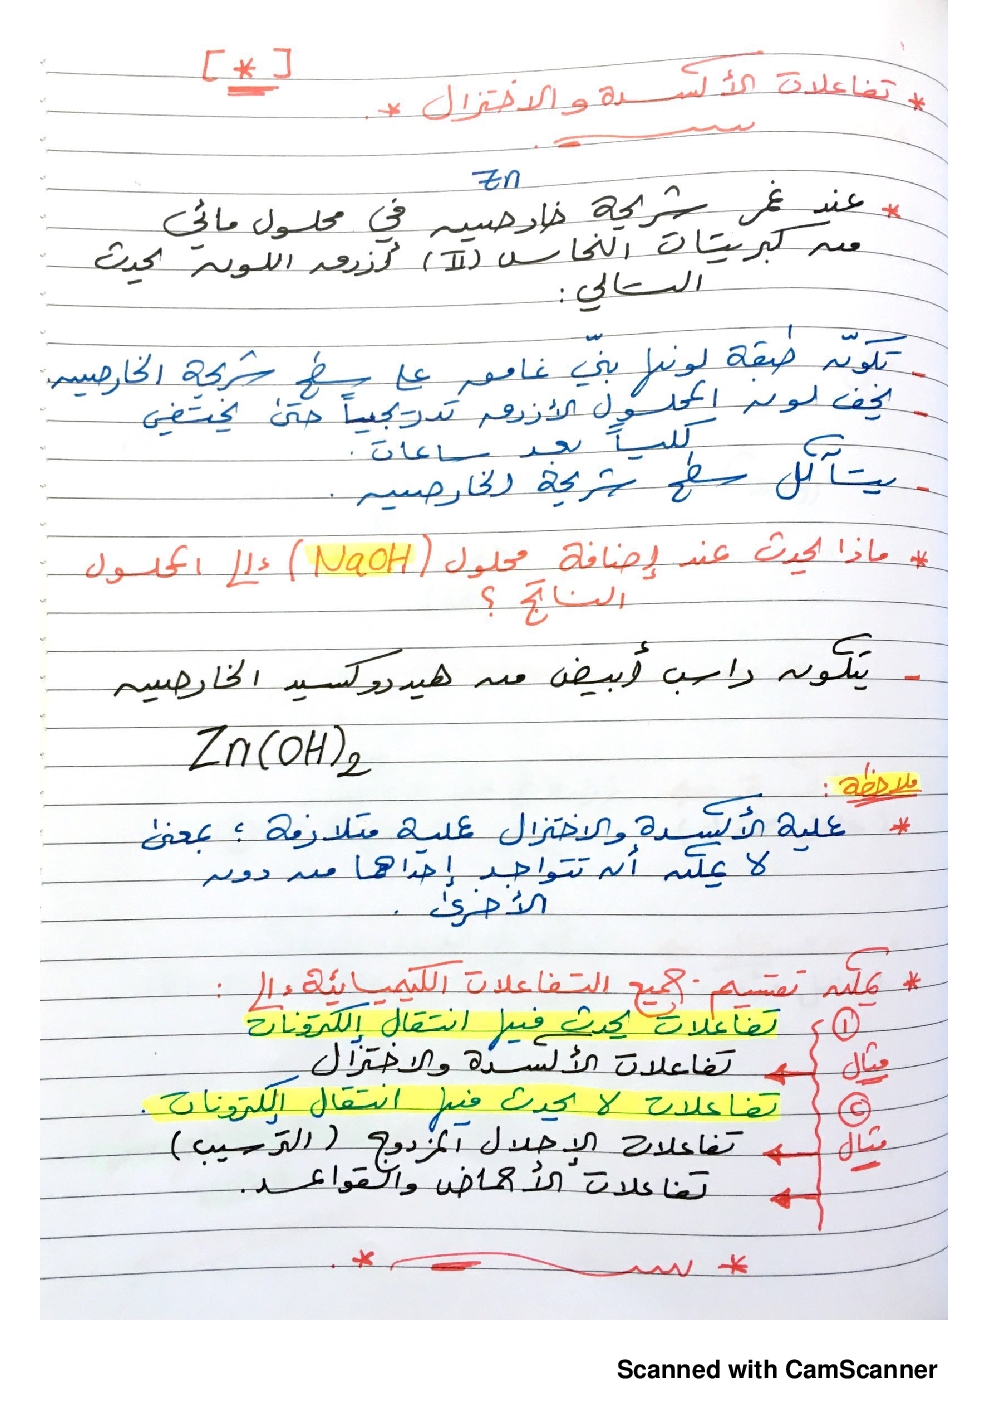 [*]
* تفاعلات الأكسدة والاختزال *.
Zn
* عند غمر شريحة خارصين في محلول مائي
من كبريتات النحاس (II) أزرق اللون يحدث
التالي :
- تكوّن طبقة لونها بنّي غامق على سطح شريحة الخارصين.
- يخف لون المحلول الأزرق تدريجياً حتى يختفي
كلياً بعد ساعات .
- يتآكل سطح شريحة الخارصين .
* ماذا يحدث عند إضافة محلول (NaOH) إلى المحلول
الناتج ؟
- يتكون راسب أبيض من هيدروكسيد الخارصين
Zn(OH)2
ملاحظة :
* عملية الأكسدة والاختزال عملية متلازمة ؛ بمعنى
لا يمكن أن تتواجد إحداها من دون
الأخرى .
* يمكن تقسيم جميع التفاعلات الكيميائية إلى :
① تفاعلات يحدث فيها انتقال إلكترونات
مثال تفاعلات الأكسدة والاختزال
② تفاعلات لا يحدث فيها انتقال إلكترونات .
مثال تفاعلات الإحلال المزدوج (الترسيب)
تفاعلات الأحماض والقواعد .
* *
Scanned with CamScanner